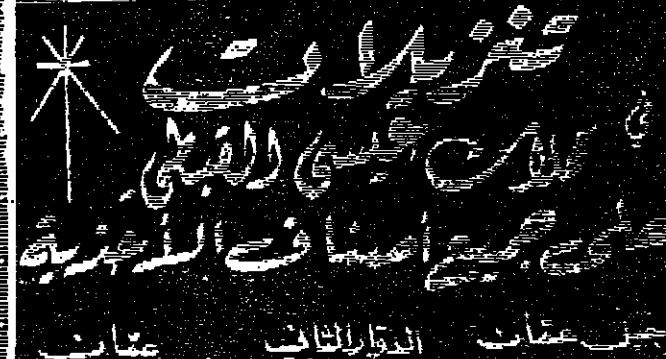 تنزيلات
في محلات عيسى القبطي
على جميع أصناف الأحذية
جبل عمان الدوار الثالث عمان